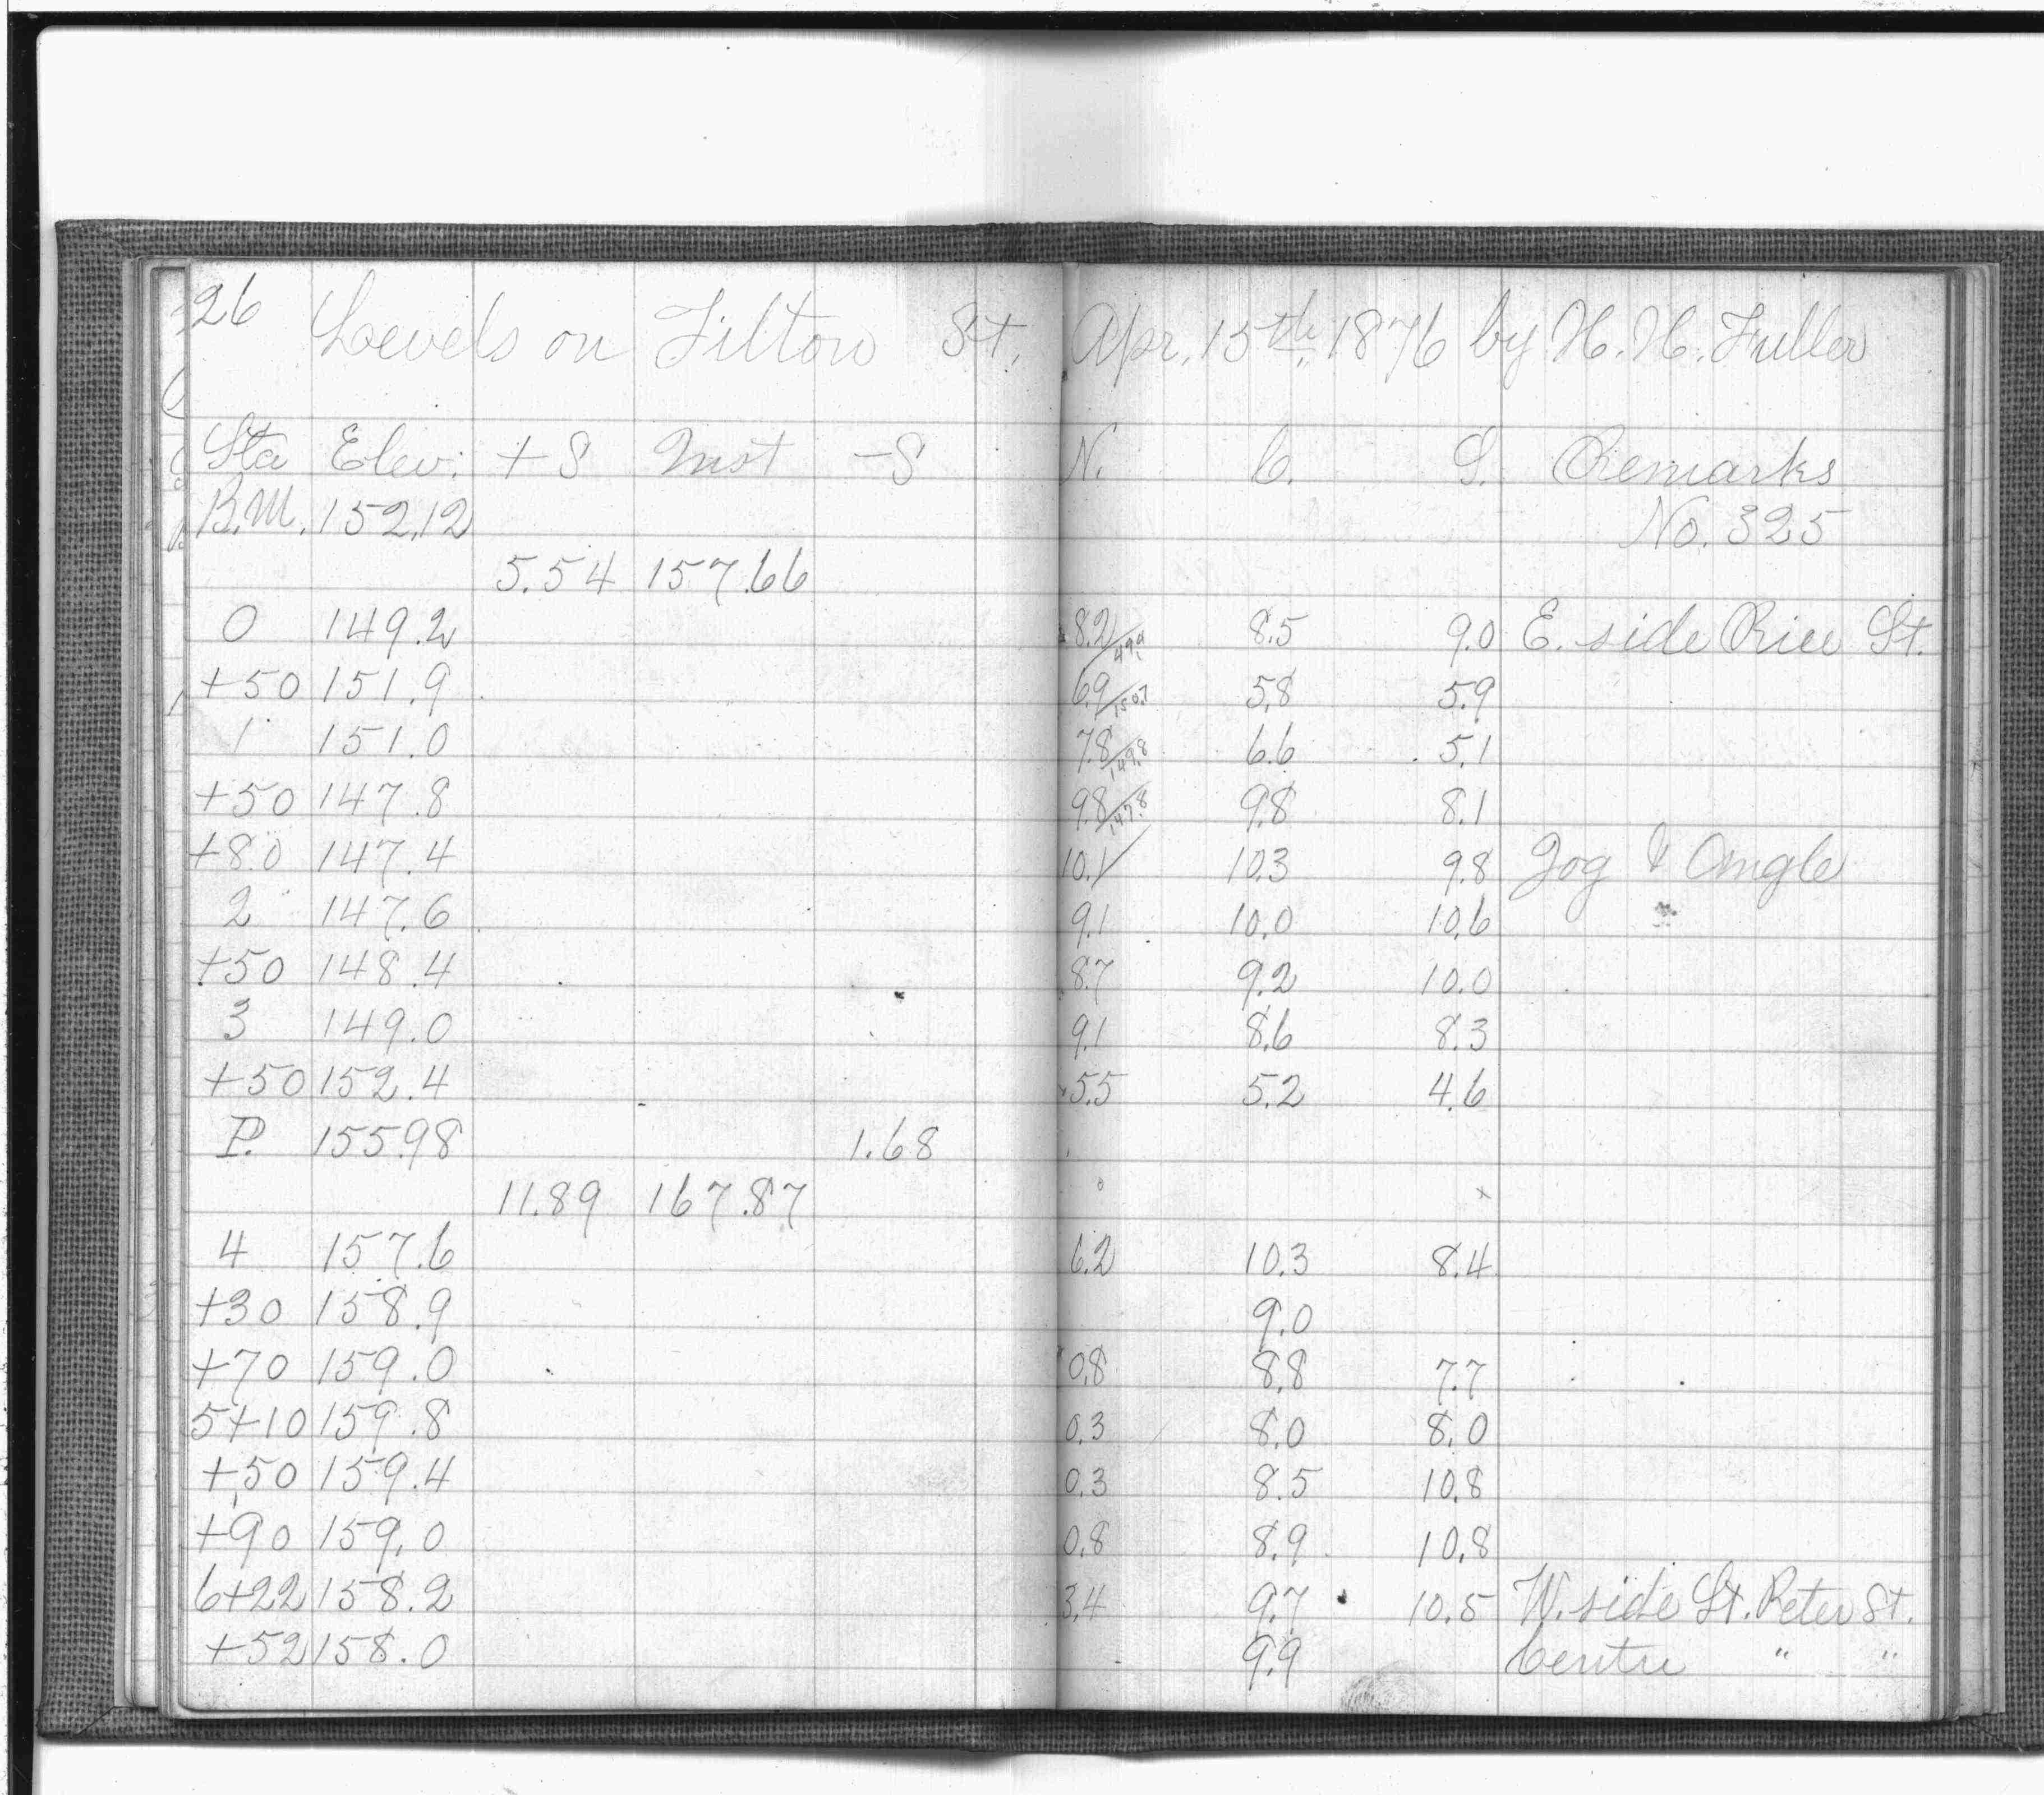 26
Levels on Tilton St. Apr. 15th, 1876 by H. H. Fuller
Sta Elev: +S Inst -S N. C. S. Remarks
B.M. 152.12 No. 325
5.54 157.66
0 149.2 8.2/49.4 8.5 9.0 E. side Rice St.
+50 151.9 6.9/150.7 5.8 5.9
1 151.0 7.8/149.8 6.6 5.1
+50 147.8 9.8/147.8 9.8 8.1
+80 147.4 10.1/ 10.3 9.8 Jog & Angle
2 147.6 9.1 10.0 10.6 "
+50 148.4 8.7 9.2 10.0
3 149.0 9.1 8.6 8.3
+50 152.4 5.5 5.2 4.6
P. 155.98 1.68
11.89 167.87
4 157.6 6.2 10.3 8.4
+30 158.9 9.0
+70 159.0 0.8 8.8 7.7
5+10 159.8 0.3 8.0 8.0
+50 159.4 0.3 8.5 10.8
+90 159.0 0.8 8.9 10.8
6+22 158.2 3.4 9.7 10.5 W. side St. Peter St.
+52 158.0 9.9 Centre " "